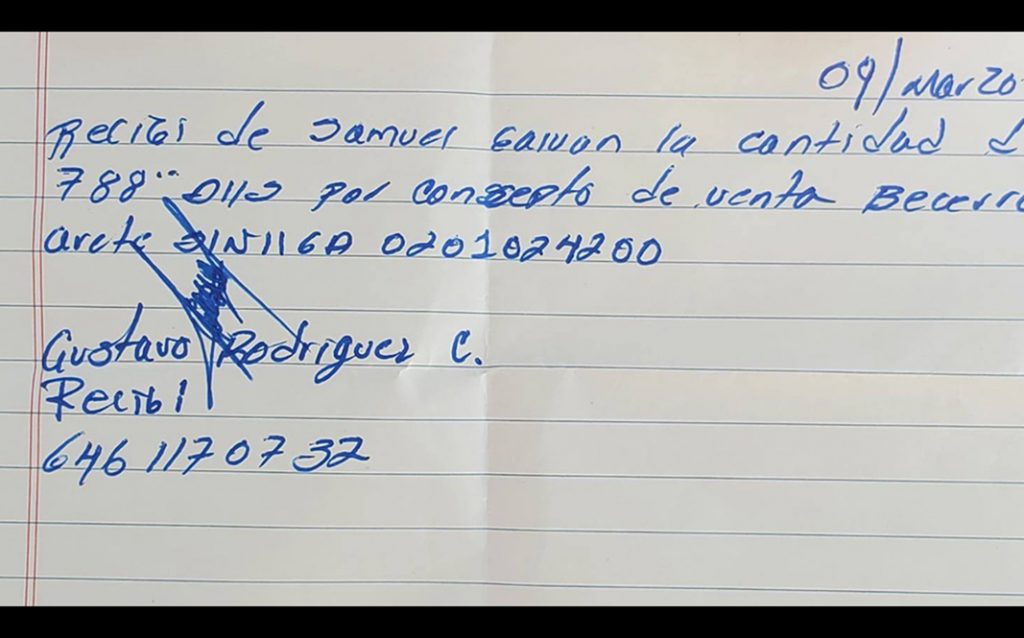 09/Marzo
Recibi de Samuel Galvan la cantidad d
788.00 Dlls por concepto de venta Becerro
arete SINIIGA 0201024200
Gustavo Rodriguez C.
Recibi
646 117 07 32